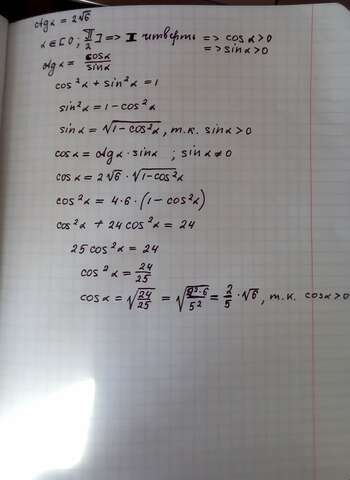 ctg α = 2√6
α ∈ [0; π/2] => I четверть => cos α > 0
=> sin α > 0
ctg α = cos α / sin α
cos²α + sin²α = 1
sin²α = 1 - cos²α
sin α = √(1 - cos²α), т.к. sin α > 0
cos α = ctg α · sin α ; sin α ≠ 0
cos α = 2√6 · √(1-cos²α)
cos²α = 4·6·(1 - cos²α)
cos²α + 24 cos²α = 24
25 cos²α = 24
cos²α = 24/25
cos α = √(24/25) = √(2²·6/5²) = 2/5 · √6, т.к. cos α > 0